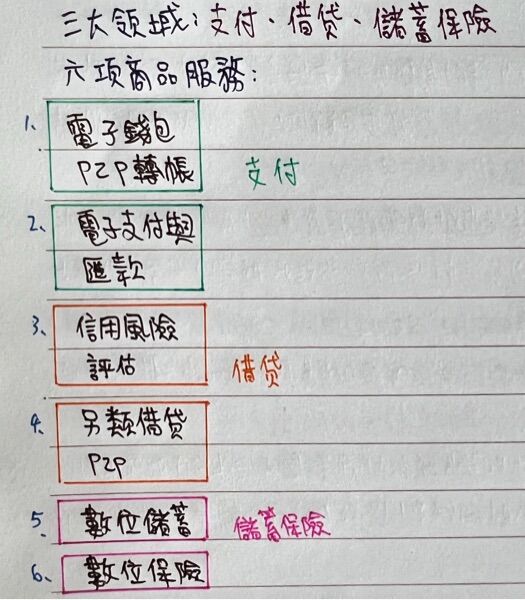 三大领域：支付、借贷、儲蓄保險
六項商品服務：
1、電子錢包
P2P轉帳 支付
2、電子支付與
匯款
3、信用風險
評估 借贷
4、另類借貸
P2P
5、數位儲蓄 儲蓄保險
6、數位保險